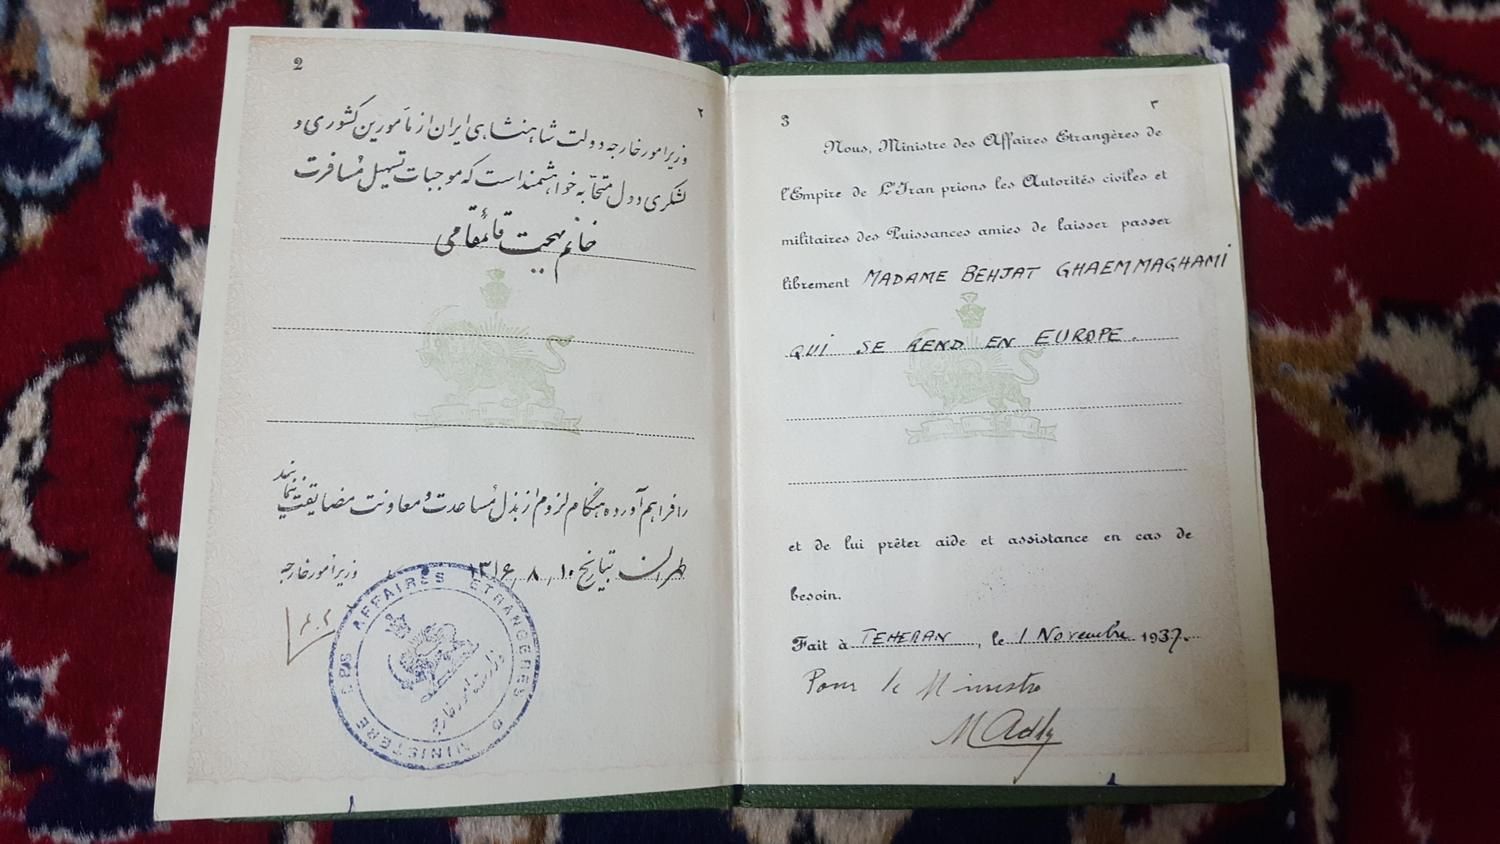 2
٢
وزیر امور خارجه دولت شاهنشاهی ایران از مأمورین کشوری و
لشکری دول متحابه خواهشمند است که موجبات تسهیل مسافرت
خانم بهجت قائممقامی
را فراهم آورده هنگام لزوم از بذل مساعدت و معاونت مضایقت ننمایند
طهران بتاریخ ١٠ ٨ ١٣١٦
وزیر امور خارجه
MINISTERE DES AFFAIRES ETRANGERES
وزارت امور خارجه
3
٣
Nous, Ministre des Affaires Etrangères de
l'Empire de L'Iran prions les Autorités civiles et
militaires des Puissances amies de laisser passer
librement MADAME BEHJAT GHAEMMAGHAMI
QUI SE REND EN EUROPE.
et de lui prêter aide et assistance en cas de
besoin.
Fait à TEHERAN, le 1 Novembre 1937.
Pour le Ministre
M Adly